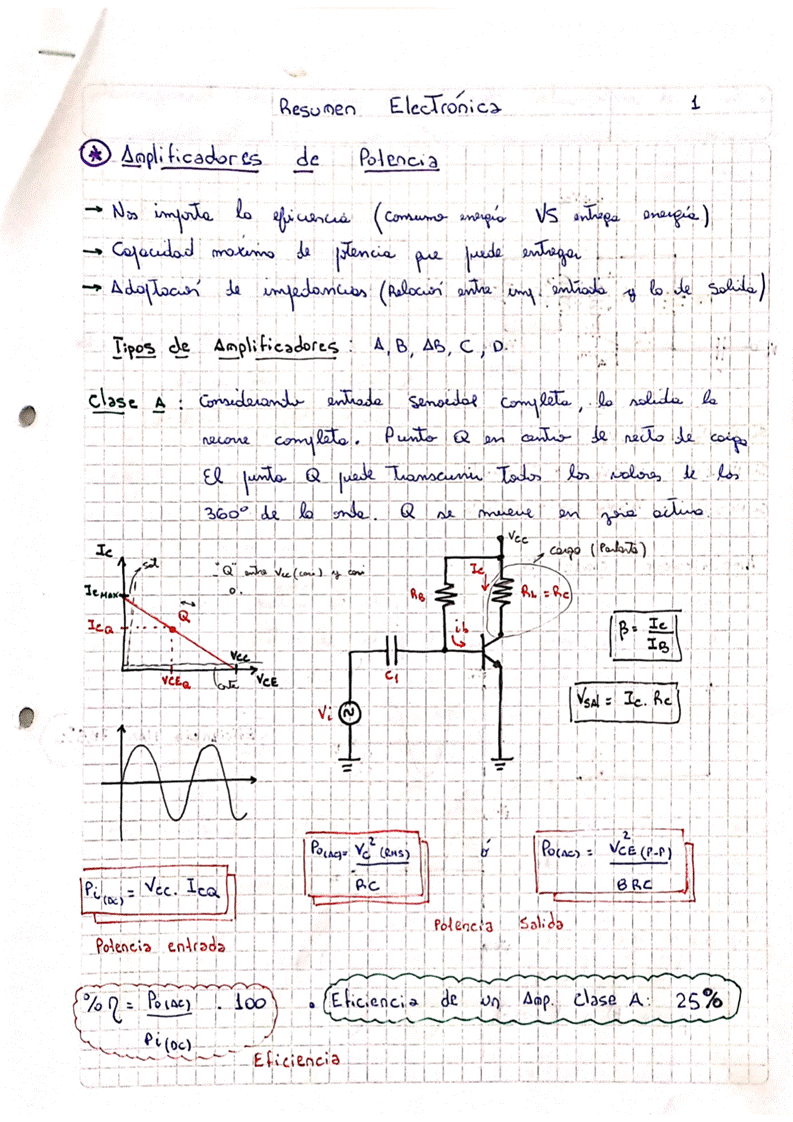 Resumen Electrónica 1
* Amplificadores de Potencia
→ Nos importa la eficiencia (consumo energía VS entrega energía)
→ Capacidad máxima de potencia que puede entregar
→ Adaptación de impedancias (Relación entre imp. entrada y la de salida)
Tipos de Amplificadores: A, B, AB, C, D.
Clase A: Considerando entrada senoidal completa, la salida la
recorre completa. Punto Q en centro de recta de carga
El punto Q puede transcurrir todos los valores de los
360° de la onda. Q se mueve en zona activa.
Ic
sat
"Q" entre Vcc (casi) y casi
0.
IcMAX
Q
IcQ
Vcc
VCEQ
corte
VCE
Vcc
carga (Parlante)
Ic
RB
RL = Rc
ib
C1
Vi
β = Ic / IB
Vsal = Ic. Rc
Pi(DC) = Vcc. IcQ
Potencia entrada
Po(AC) = Vc² (RMS) / RC
ó
Po(AC) = VCE² (P-P) / 8RC
Potencia Salida
% η = Po(AC) / Pi(DC) . 100
Eficiencia
• Eficiencia de un Amp. Clase A: 25%